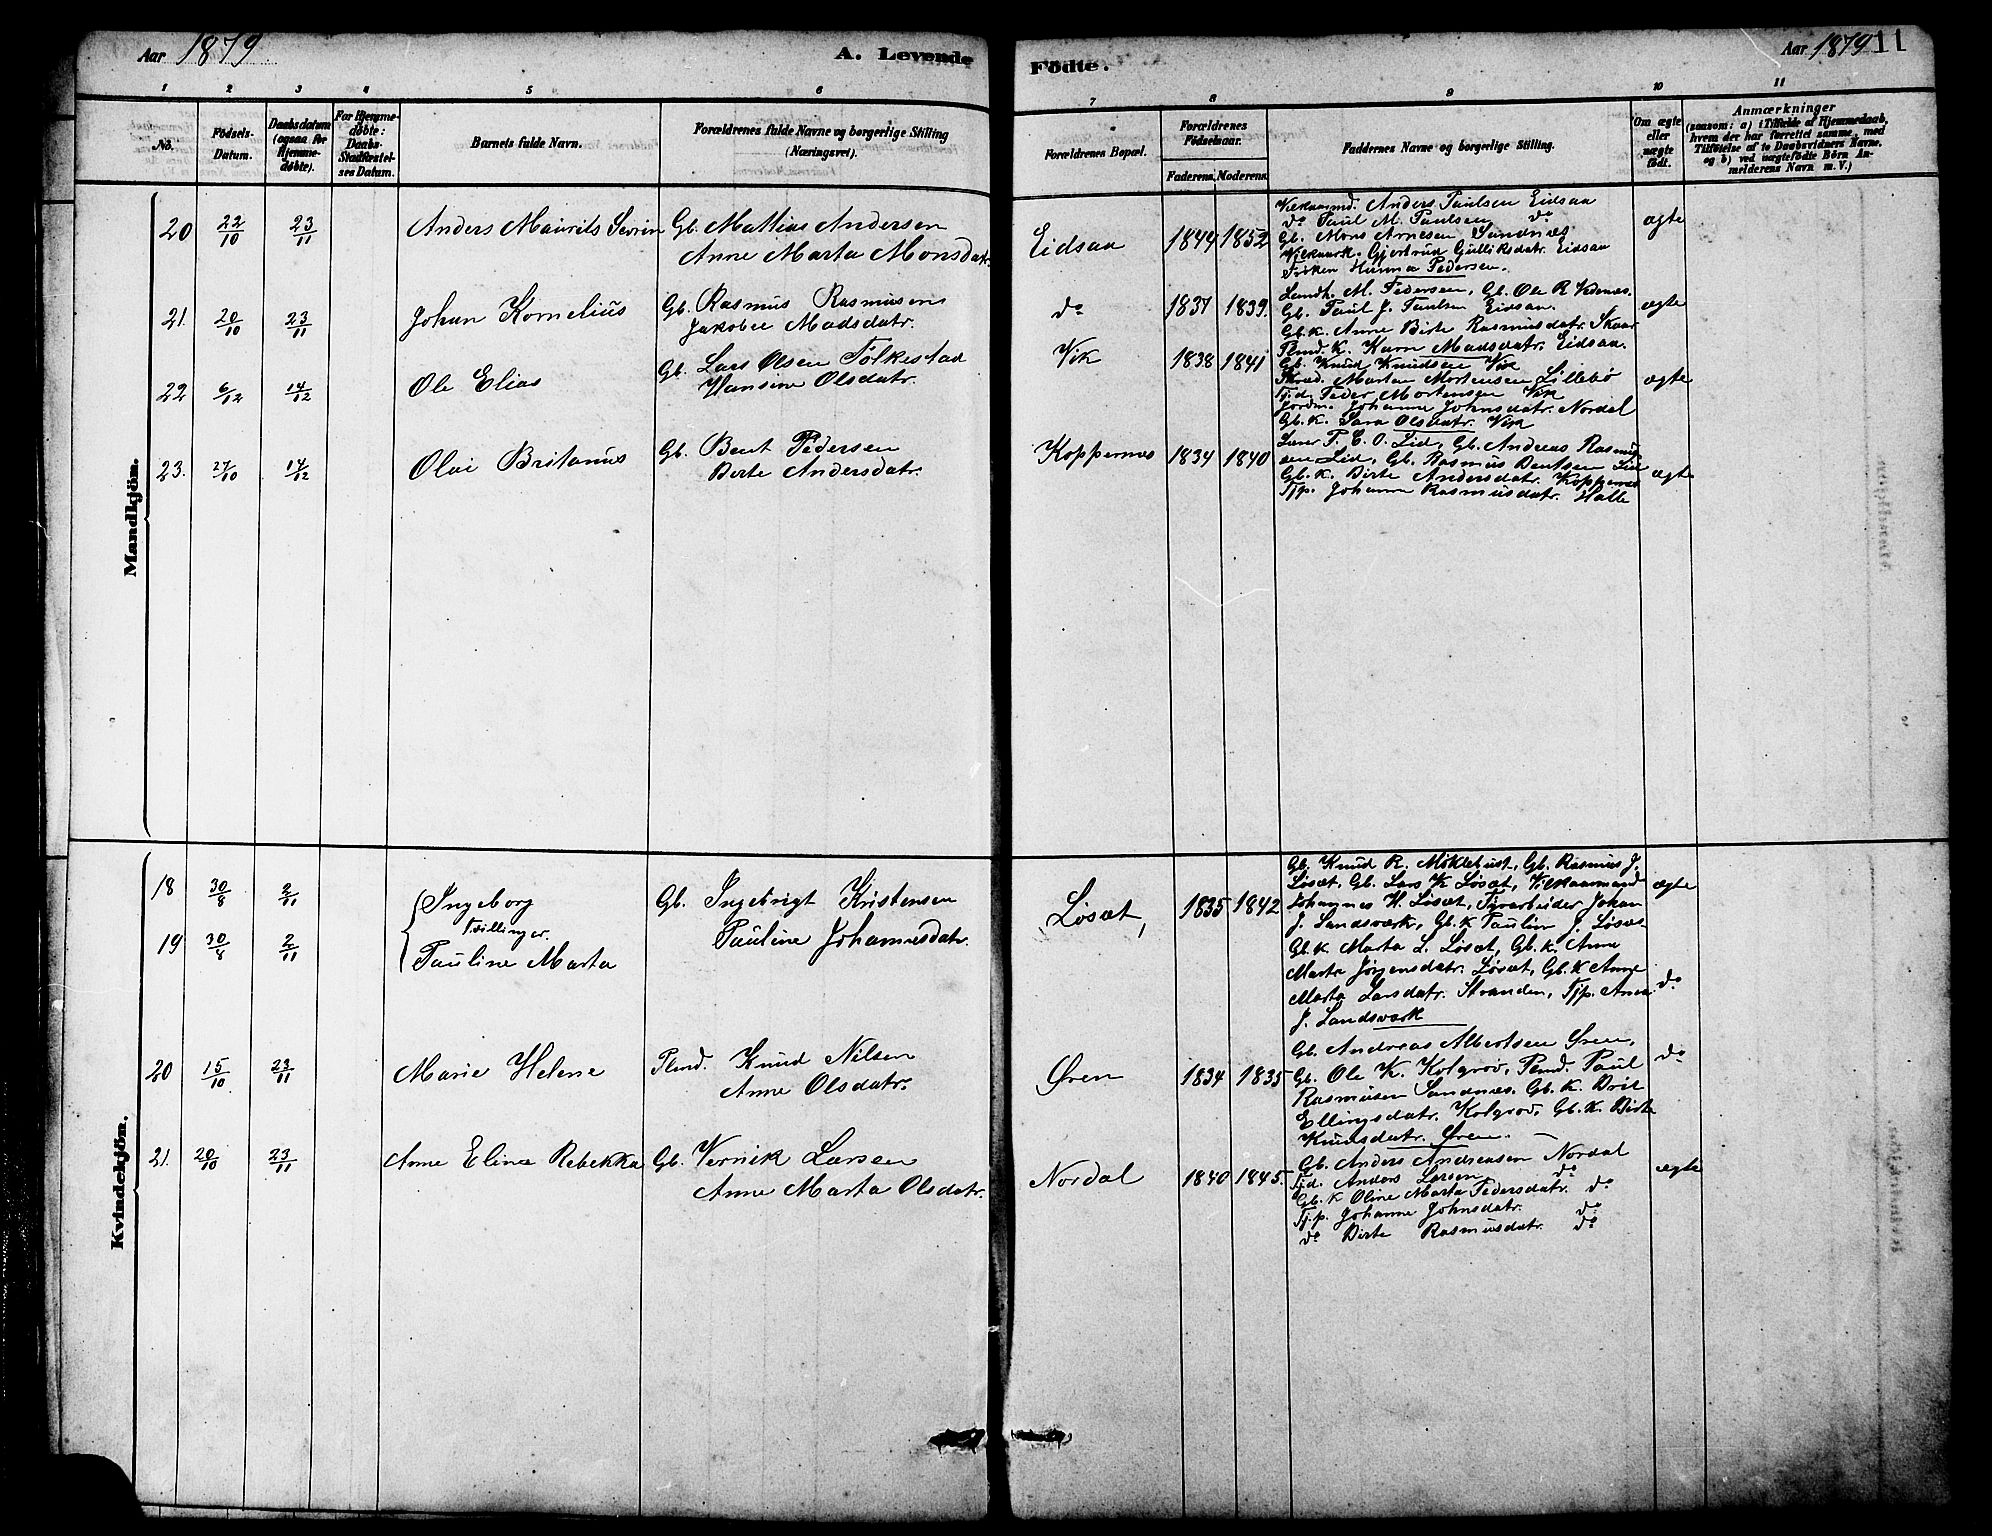 Aar 1879.
A. Levende Födte.
Aar 1879 11
1 2 3 4 5 6 7 8 9 10 11
No.
Födsels-Datum.
Daabsdatum (ogsaa for Hjemme-døbte).
For Hjemme-døbte: Daabs-Stadfæstel-ses Datum.
Barnets fulde Navn.
Forældrenes fulde Navne og borgerlige Stilling (Næringsvei).
Forældrenes Bopæl.
Forældrenes Födselsaar.
Faderens. Moderens.
Faddernes Navne og borgerlige Stilling.
Om ægte eller uægte födt.
Anmærkninger
(saasom: a) i Tilfælde af Hjemmedaab, hvem der har forrettet samme, med Tilföielse af to Daabsvidners Navne, og b) ved uægtefödte Börn An-melderens Navn m. V.)
Mandkjön.
20 22/10 23/11 Anders Maurits Severin
Gb. Mathias Andersen
Anne Marta Monsdatr.
Eidsaa 1844 1852
Vilkaarmd. Anders Paulsen Eidsaa
do Paul M. Paulsen do
Gb. Mons Arnesen Sandnæs
Vilkaark. Gjertrud Gulliksdatr. Eidsaa
Frøken Hanna Pedersen.
ægte
21. 20/10 23/11 Johan Kornelius
Gb. Rasmus Rasmusen
Jakobee Madsdatr.
do 1837 1839.
Landh. M. Pedersen, Gb. Ole R.
Gb. Paul J. Paulsen Eidsaa.
Gb. k. Anne Birte Rasmusdatr. Skaar
Plmd. K. Karn Madsdatr. Eidsaa.
ægte
22 6/12 14/12 Ole Elias
Gb. Lars Olsen Folkestad
Hansine Olsdatr.
Vik 1838 1841
Gb. Knud Knudsen Vik
Morten Mortensen Lillebø
Tjd. Peder Mortensen Vik
Jordm. Johanne Johnsdatr. Nordal
Gb. K. Sara Olsdatr. Vik
ægte
23. 27/10 14/12 Olai Britanus
Gb. Bent Pedersen
Birte Andersdatr.
Koppernæs 1834 1840
Lærer P. E. O. Lid, Gb. Andreas Rasmus-
sen Lid, Gb. Rasmus Bentsen Lid
Gb. K. Birte Andersdatr. Koppernæs
Tjp. Johanne Rasmusdatr. Halle
ægte
Kvindekjön.
18 30/8 2/11 Ingeborg
Tvillinger
19 30/8 2/11 Pauline Marta
Gb. Ingebrigt Kristensen
Pauline Johannesdatr.
Løsæt, 1835 1842
Gb. Knud R. Møklebust, Gb. Rasmus J.
Løsæt, Gb. Lars K. Løsæt, Vilkaarmand
Johannes H. Løsæt, Johan
J. Landsværk, Gb. k Paulin J. Løsæt
Gb. k Marta L. Løsæt, Gb. k. Anne
Marta Jørgensdatr. Løsæt, Gb. k Anne
Marta Larsdatr. Stranden, Tjp. Anna
J. Landsværk
ægte
do
20 15/10 23/11 Marie Helene
Plmd. Knud Nilsen
Anne Olsdatr.
Øren 1834 1835
Gb. Andreas Albertsen Øren,
Gb. Ole K. Kolgrov, Plmd. Paul
Rasmusen Sandnæs, Gb. K. Brit
Ellingsdatr. Kolgrov, Gb. K. Birte
Knudsdatr. Øren.
do
21. 20/10 23/11 Anne Eline Rebekka
Gb. Vernik Larsen
Anne Marta Olsdatr.
Nordal 1840 1845.
Gb. Anders Andreasen Nordal
Tjd. Anders Larsen do
Gb. K Oline Marta Pedersdatr. do
Tj.p. Johanne Johnsdatr. do
do Birte Rasmusdatr. do
ægte